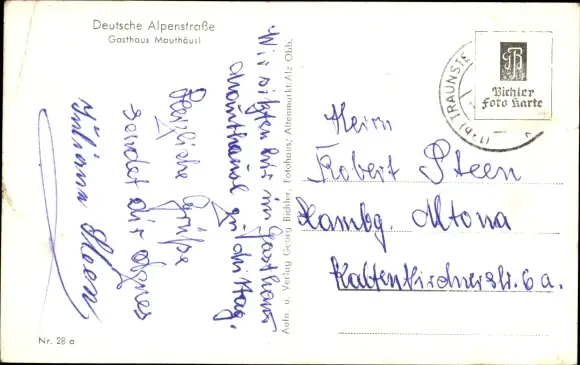 Deutsche Alpenstraße
Gasthaus Mauthäusl
Wir sitzen hier im Gasthaus
Mauthäusl zu Mittag.
Herzliche Grüße
sendet dir Agnes
Juliana Steen
Aufn. u. Verlag Georg Bichler, Fotohaus, Altenmarkt/Alz Obb.
(13b) TRAUNSTE
Bichler
Foto Karte
Herrn
Robert Steen
Hambg. Altona
Kaltenkircherstr. 6a.
Nr. 28 a